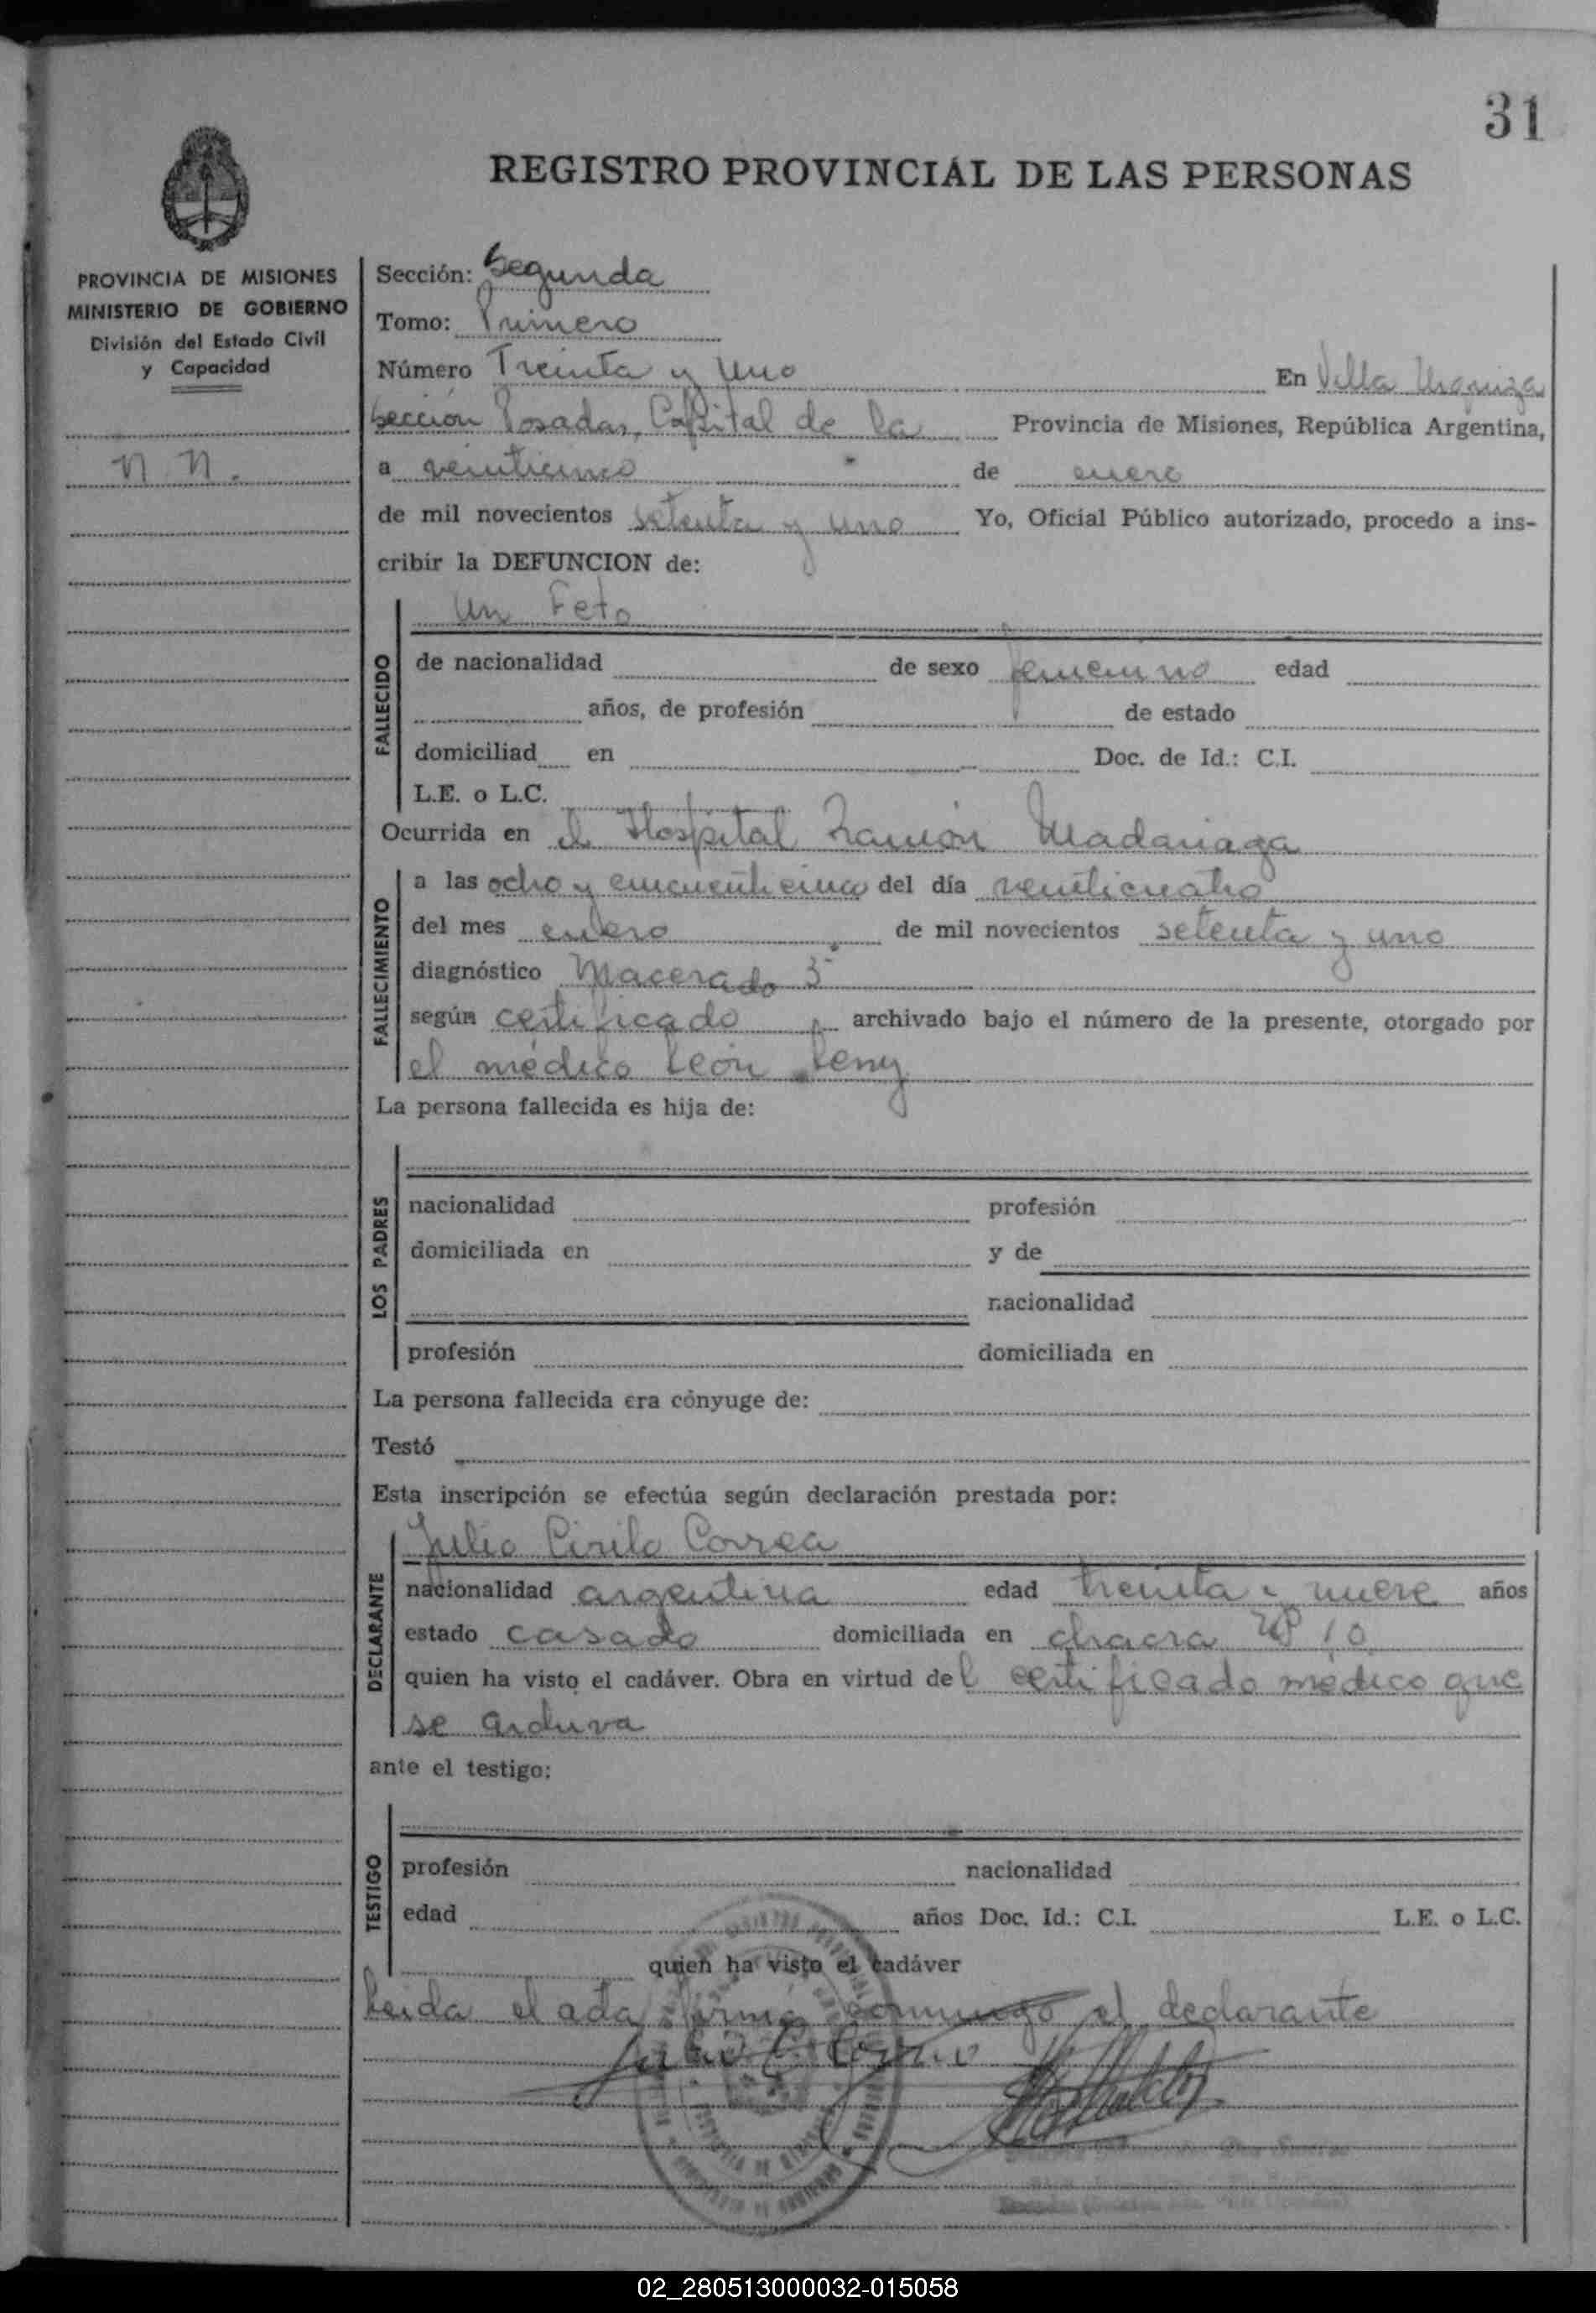 31
REGISTRO PROVINCIAL DE LAS PERSONAS
PROVINCIA DE MISIONES
MINISTERIO DE GOBIERNO
División del Estado Civil
y Capacidad
n n.
Sección: Segunda
Tomo: Primero
Número Treinta y Uno En Villa Urquiza
Sección Posadas, Capital de la Provincia de Misiones, República Argentina,
a veinticinco de enero
de mil novecientos setenta y uno Yo, Oficial Público autorizado, procedo a ins-
cribir la DEFUNCION de:
Un Feto
FALLECIDO
de nacionalidad de sexo femenino edad
años, de profesión de estado
domiciliad en Doc. de Id.: C.I.
L.E. o L.C.
Ocurrida en el Hospital Ramón Madariaga
FALLECIMIENTO
a las ocho y cincuenticinco del día veinticuatro
del mes enero de mil novecientos setenta y uno
diagnóstico Macerado 3
según certificado archivado bajo el número de la presente, otorgado por
el médico León
La persona fallecida es hija de:
LOS PADRES
nacionalidad profesión
domiciliada en y de
nacionalidad
profesión domiciliada en
La persona fallecida era cónyuge de:
Testó
Esta inscripción se efectúa según declaración prestada por:
Julio Cirilo Correa
DECLARANTE
nacionalidad argentina edad treinta y nueve años
estado casado domiciliada en chacra Nº 10
quien ha visto el cadáver. Obra en virtud del certificado médico que
se archiva
ante el testigo:
TESTIGO
profesión nacionalidad
edad años Doc. Id.: C.I. L.E. o L.C.
quien ha visto el cadáver
Leida el acta firma conmigo el declarante
02_280513000032-015058